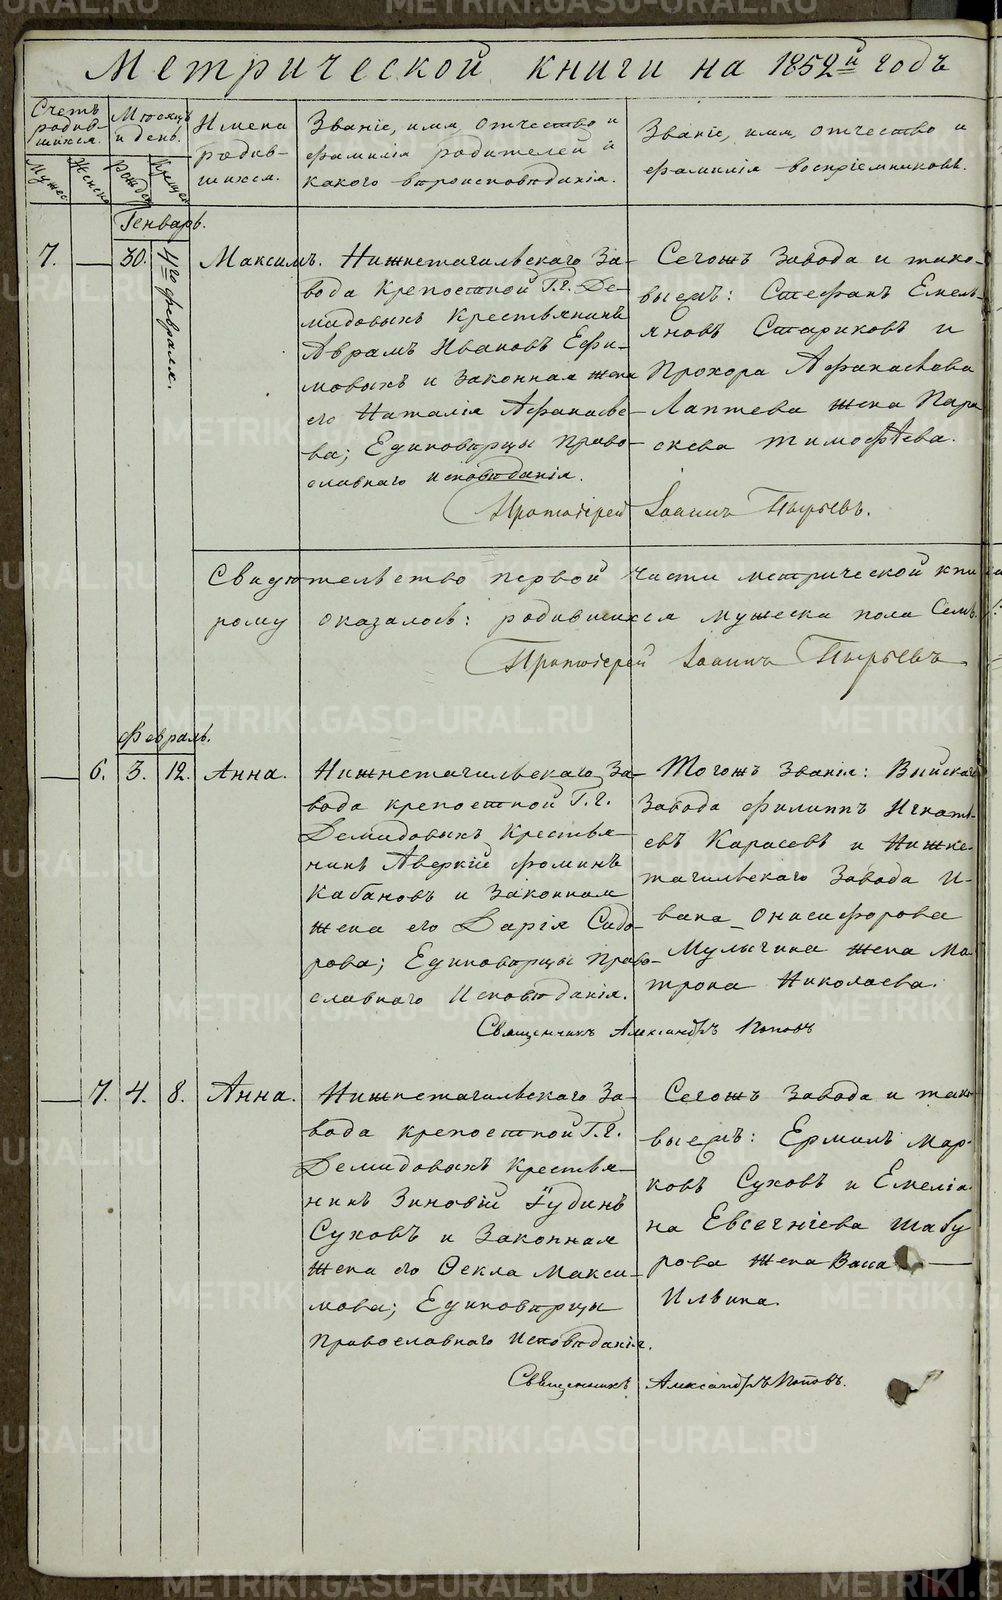 Метрической книги на 1852й годъ
Счетъ родив-шихся.
Мужес
Женска
Мѣсяцъ и день.
Рожден
Крещен
Имена
родив-
шихся.
Званіе, имя, отчество и
фамилія родителей и
какого вѣроисповѣданія.
Званіе, имя, отчество и
фамилія воспріемниковъ.
Генварь.
7.
30.
4го февраля.
Максимъ.
Нижнетагильскаго За-
вода крепостной Г.г. Де-
мидовыхъ крестьянинъ
Аврамъ Ивановъ Ефи-
мовыхъ и законная жена
его Наталія Афанасье-
ва; Единоварцы право-
славнаго исповѣданія.
Сегожъ Завода и тако-
выежъ: Стефанъ Емель-
яновъ Стариковъ и
Прохора Афанасьева
Лаптева жена Пара
скева Тимофѣева.
Протоіерей Іоаннъ Пырьевъ.
Свидѣтельство первой части метрической кни
рому оказалось: родившихся мужеска пола Семь
Протоіерей Іоаннъ Пырьевъ
Февраль.
6. 3. 12.
Анна.
Нижнетагильскаго За-
вода крепостной Г.г.
Демидовыхъ крестья-
нинъ Аверкій Фоминъ
Кабановъ и Законная
жена его Дарія Сидо-
рова; Единоварцы Право-
славнаго Исповѣданія.
Тогожъ Званія: Выйскаго
Завода Филиппъ Игнать-
евъ Карасевъ и Нижне-
тагильскаго Завода И-
вана Онисифорова
Мулычина жена Ма
трона Николаева.
Священникъ Александръ Поповъ
7. 4. 8.
Анна.
Нижнетагильскаго За-
вода крепостной Г.г.
Демидовыхъ крестья-
нинъ Зиновій Іудинъ
Суховъ и Законная
жена его Ѳекла Макси-
мова; Единоварцы
Православнаго Исповѣданія.
Сегожъ Завода и тако
выежъ: Ермилъ Мар-
ковъ Суховъ и Емелія-
на Евсегніева Шабу
рова жена Васса
Ильина.
Священникъ Александръ Поповъ.
METRIKI.GASO-URAL.RU